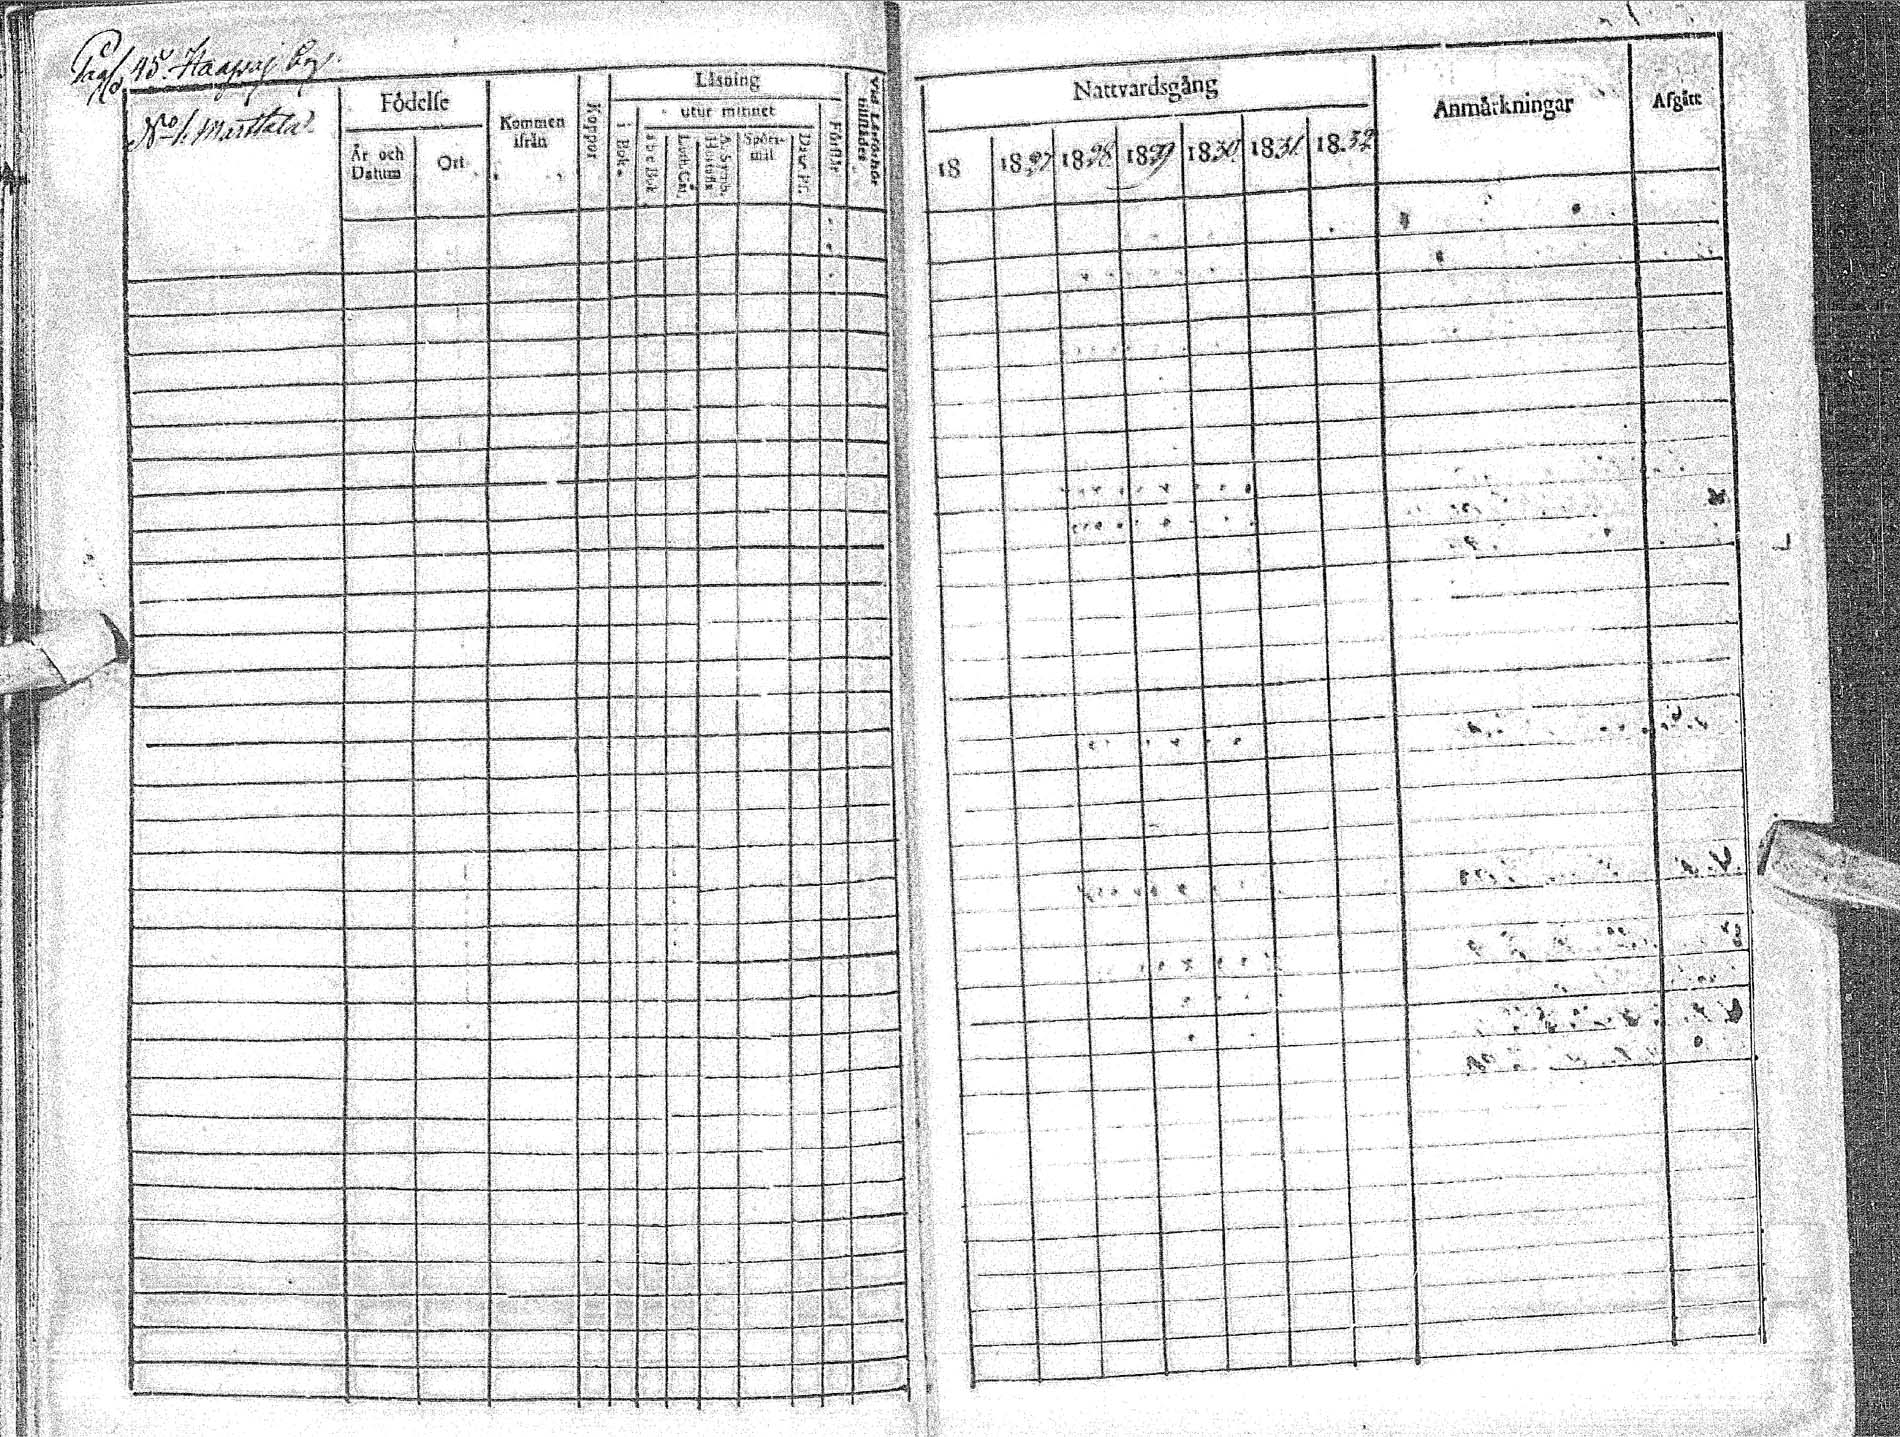 45. Haapaj by.
No 1. Marttala
Födelse
År och Datum
Ort
Kommen ifrån
Koppor
Läsning
i Bok
utur minnet
a b c Bok
Luth. Cat.
A. Symb. Hustafla
Spörsmål
Dav. Ps.
Förstår
Vid Läsförhör tillstädes
Nattvardsgång
18
1827
1828
1829
1830.
1831.
1832
Anmärkningar
Afgått